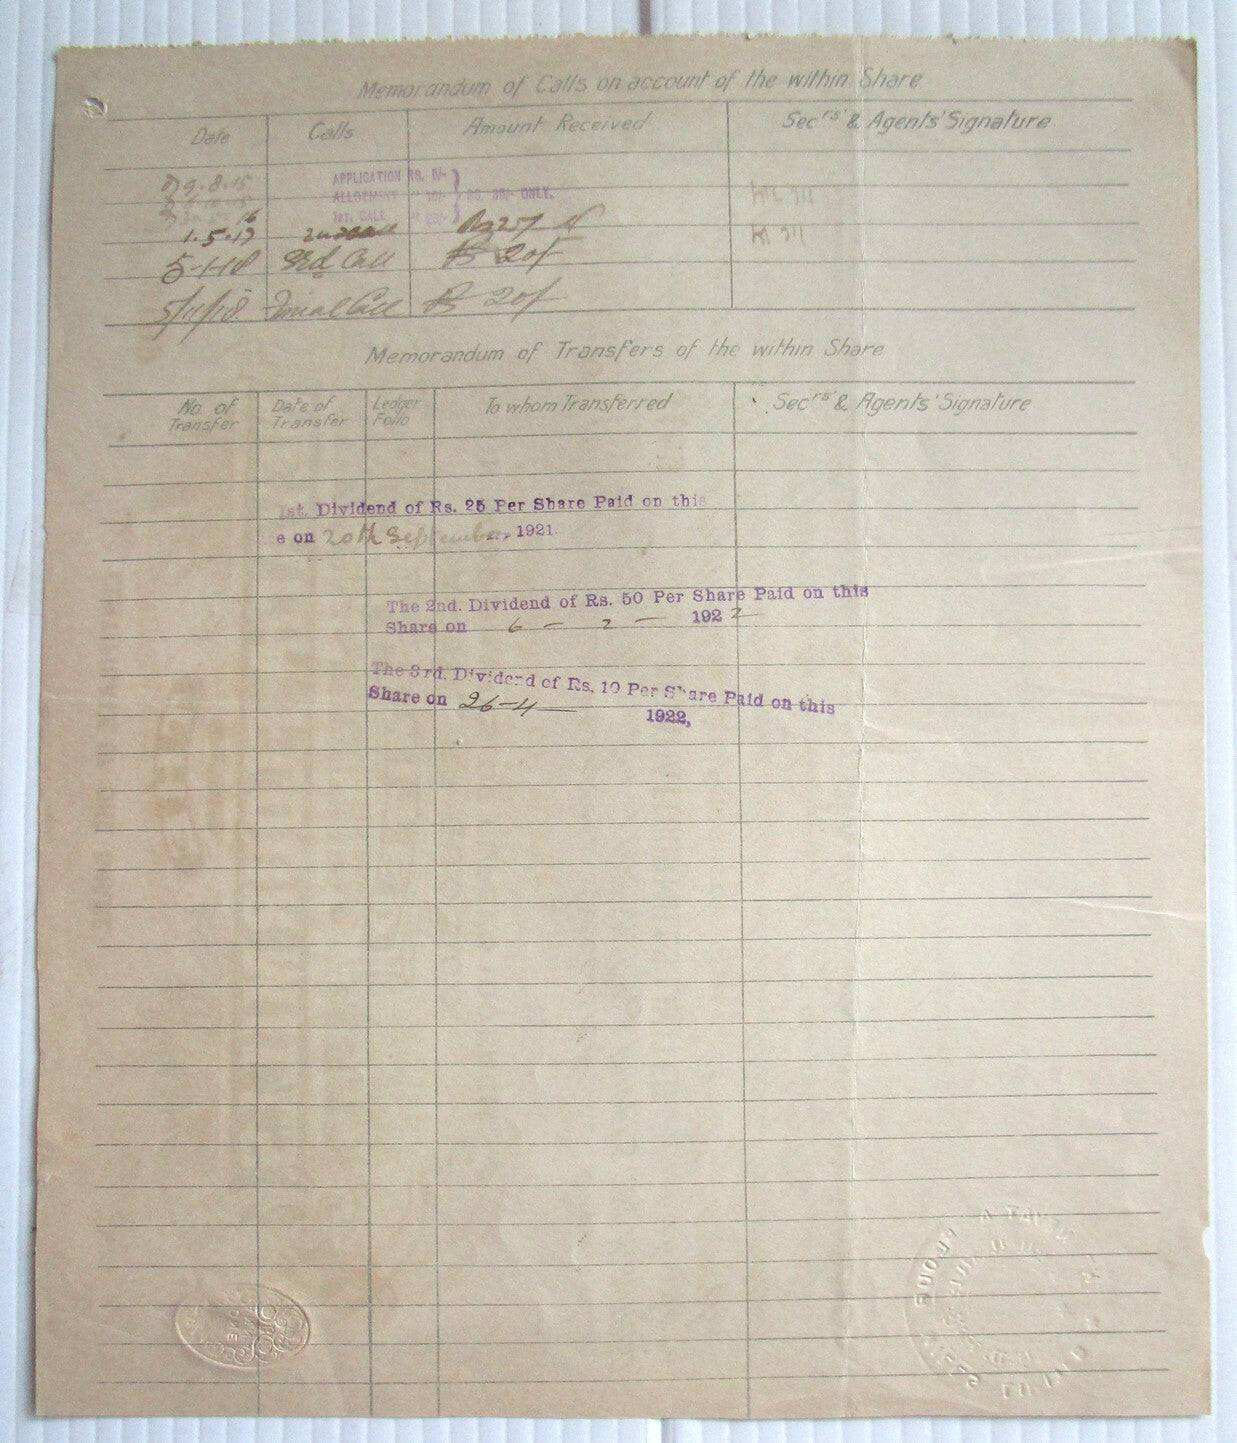 Memorandum of Calls on account of the within Share
Date Calls Amount Received Sec^rs' & Agents' Signature
9.8.15 APPLICATION RS. 5/-
ALLOTMENT " 10/- RS. 35/- ONLY.
1ST. CALL " 20/-
1.5.17 Rs 25/-
5-1-18 3rd Call Rs 20/-
5/11/18 Final Call Rs 20/-
Memorandum of Transfers of the within Share
No. of Transfer Date of Transfer Ledger Folio To whom Transferred Sec^rs' & Agents' Signature
1st. Dividend of Rs. 25 Per Share Paid on this
e on 20th September, 1921.
The 2nd. Dividend of Rs. 50 Per Share Paid on this
Share on 6 - 2 - 1922
The 3rd. Dividend of Rs. 10 Per Share Paid on this
Share on 26-4- 1922,